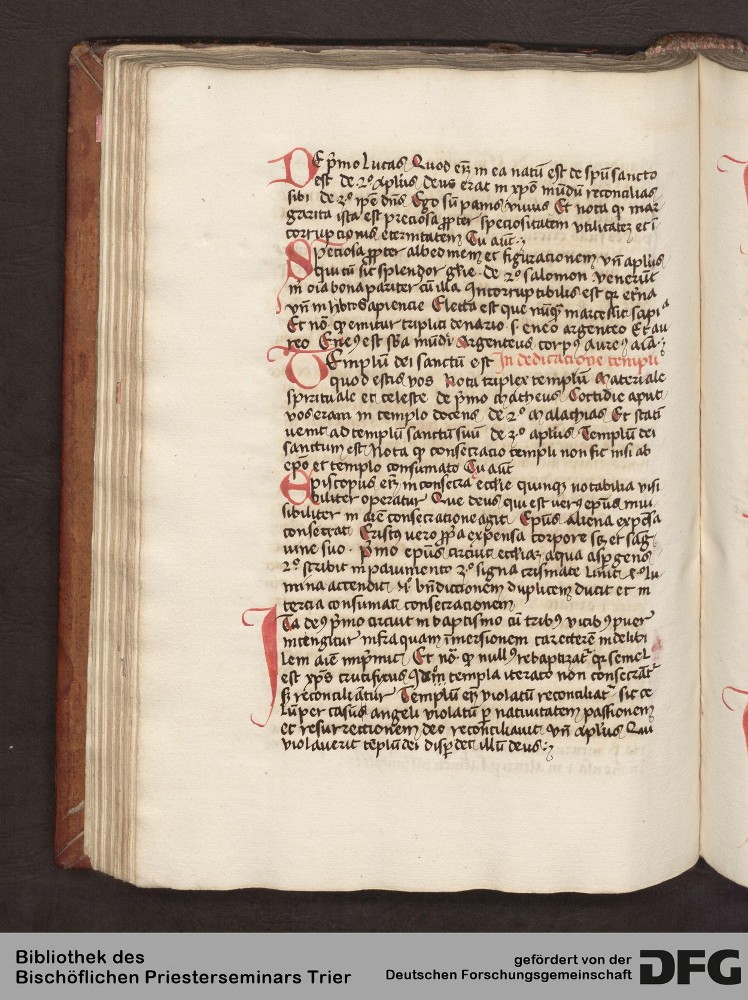 DE pͥmo Lucas Quod em̄ in ea natū est de spū sancto
est de 2º apl̄us deus erat in xp̄o mūdū reconcilias
sibi de 3º ip̄e dn̄s Ego sū panis viuus Et nota qͥ mar
garita ista est preciosa ꝓpter speciositatem vtilitatez et ī
corrupcionis eternitatem Tu aūt
SPeciosa ꝓpter albedinem et figuracionem vn̄ apl̄us
qui cū sit splendor gl̄ie de 2º salomon venerūt
m̄ oīa bona pariter cū illa Incorruptibilis est qꝛ et̄na
vn̄ in libro Sapiencie Electa est que nūqͣ marcessit sapīa
Et nō qͥ emitur triplici denario s eneo argenteo Et au
reo Eneꝰ est sb̄a mūdi Argenteus corpꝰ aureꝰ aīa
TEmplū dei sanctū est In dedicatione templi
quod estis vos Nota triplex templū Materiale
spirituale et celeste de pͥmo Matheus Cottidie aput
vos eram in templo docens de 2º Malachias Et statī
uenit ad templū sanctū suū de 3º apl̄us Templū dei
sanctum est Nota qͥ consecracio templi non fit nisi ab
ep̄o et templo consumato Tu aūt
EPiscopus em̄ in consecra eccl̄ie quinqꝫ notabilia visi
biliter operatur Que deus qui est verꝰ ep̄us inui
sibiliter in aīe consecratione agit Ep̄us aliena expēsa
consecrat Cristꝰ vero ꝓpͥa expensa corpore sꝫ et sag
wine suo pͥmo ep̄us circuit eccl̄iaꝫ aqua aspergens
2º scribit in pauimento 3º signa crismate linit 4º lu
mina accendit vº bn̄dictionem duplicem ducit et in
tercia consumat consecracionem
ITa deꝰ pͥmo circuit in baptismo cū tribꝰ vicibꝰ puer
intengitur infra quam īmersionem caracterē indelibi
lem aīe impͥmit Et nō qͥ nullꝰ rebaptizatͬ qꝛ semel
est xp̄s crucifixus templa iterato non consecrātͬ
sꝫ reconciliātur Templū em̄ violatū reconciliatͬ sic ce
lū per casū angeli violatū ꝑ natiuitatem passionem
et resurrectionem deo reconciliauit vn̄ apl̄us Qui
violauerit tēplū dei disꝑdet illū deus
Bibliothek des
Bischöflichen Priesterseminars Trier
gefördert von der
Deutschen Forschungsgemeinschaft
DFG